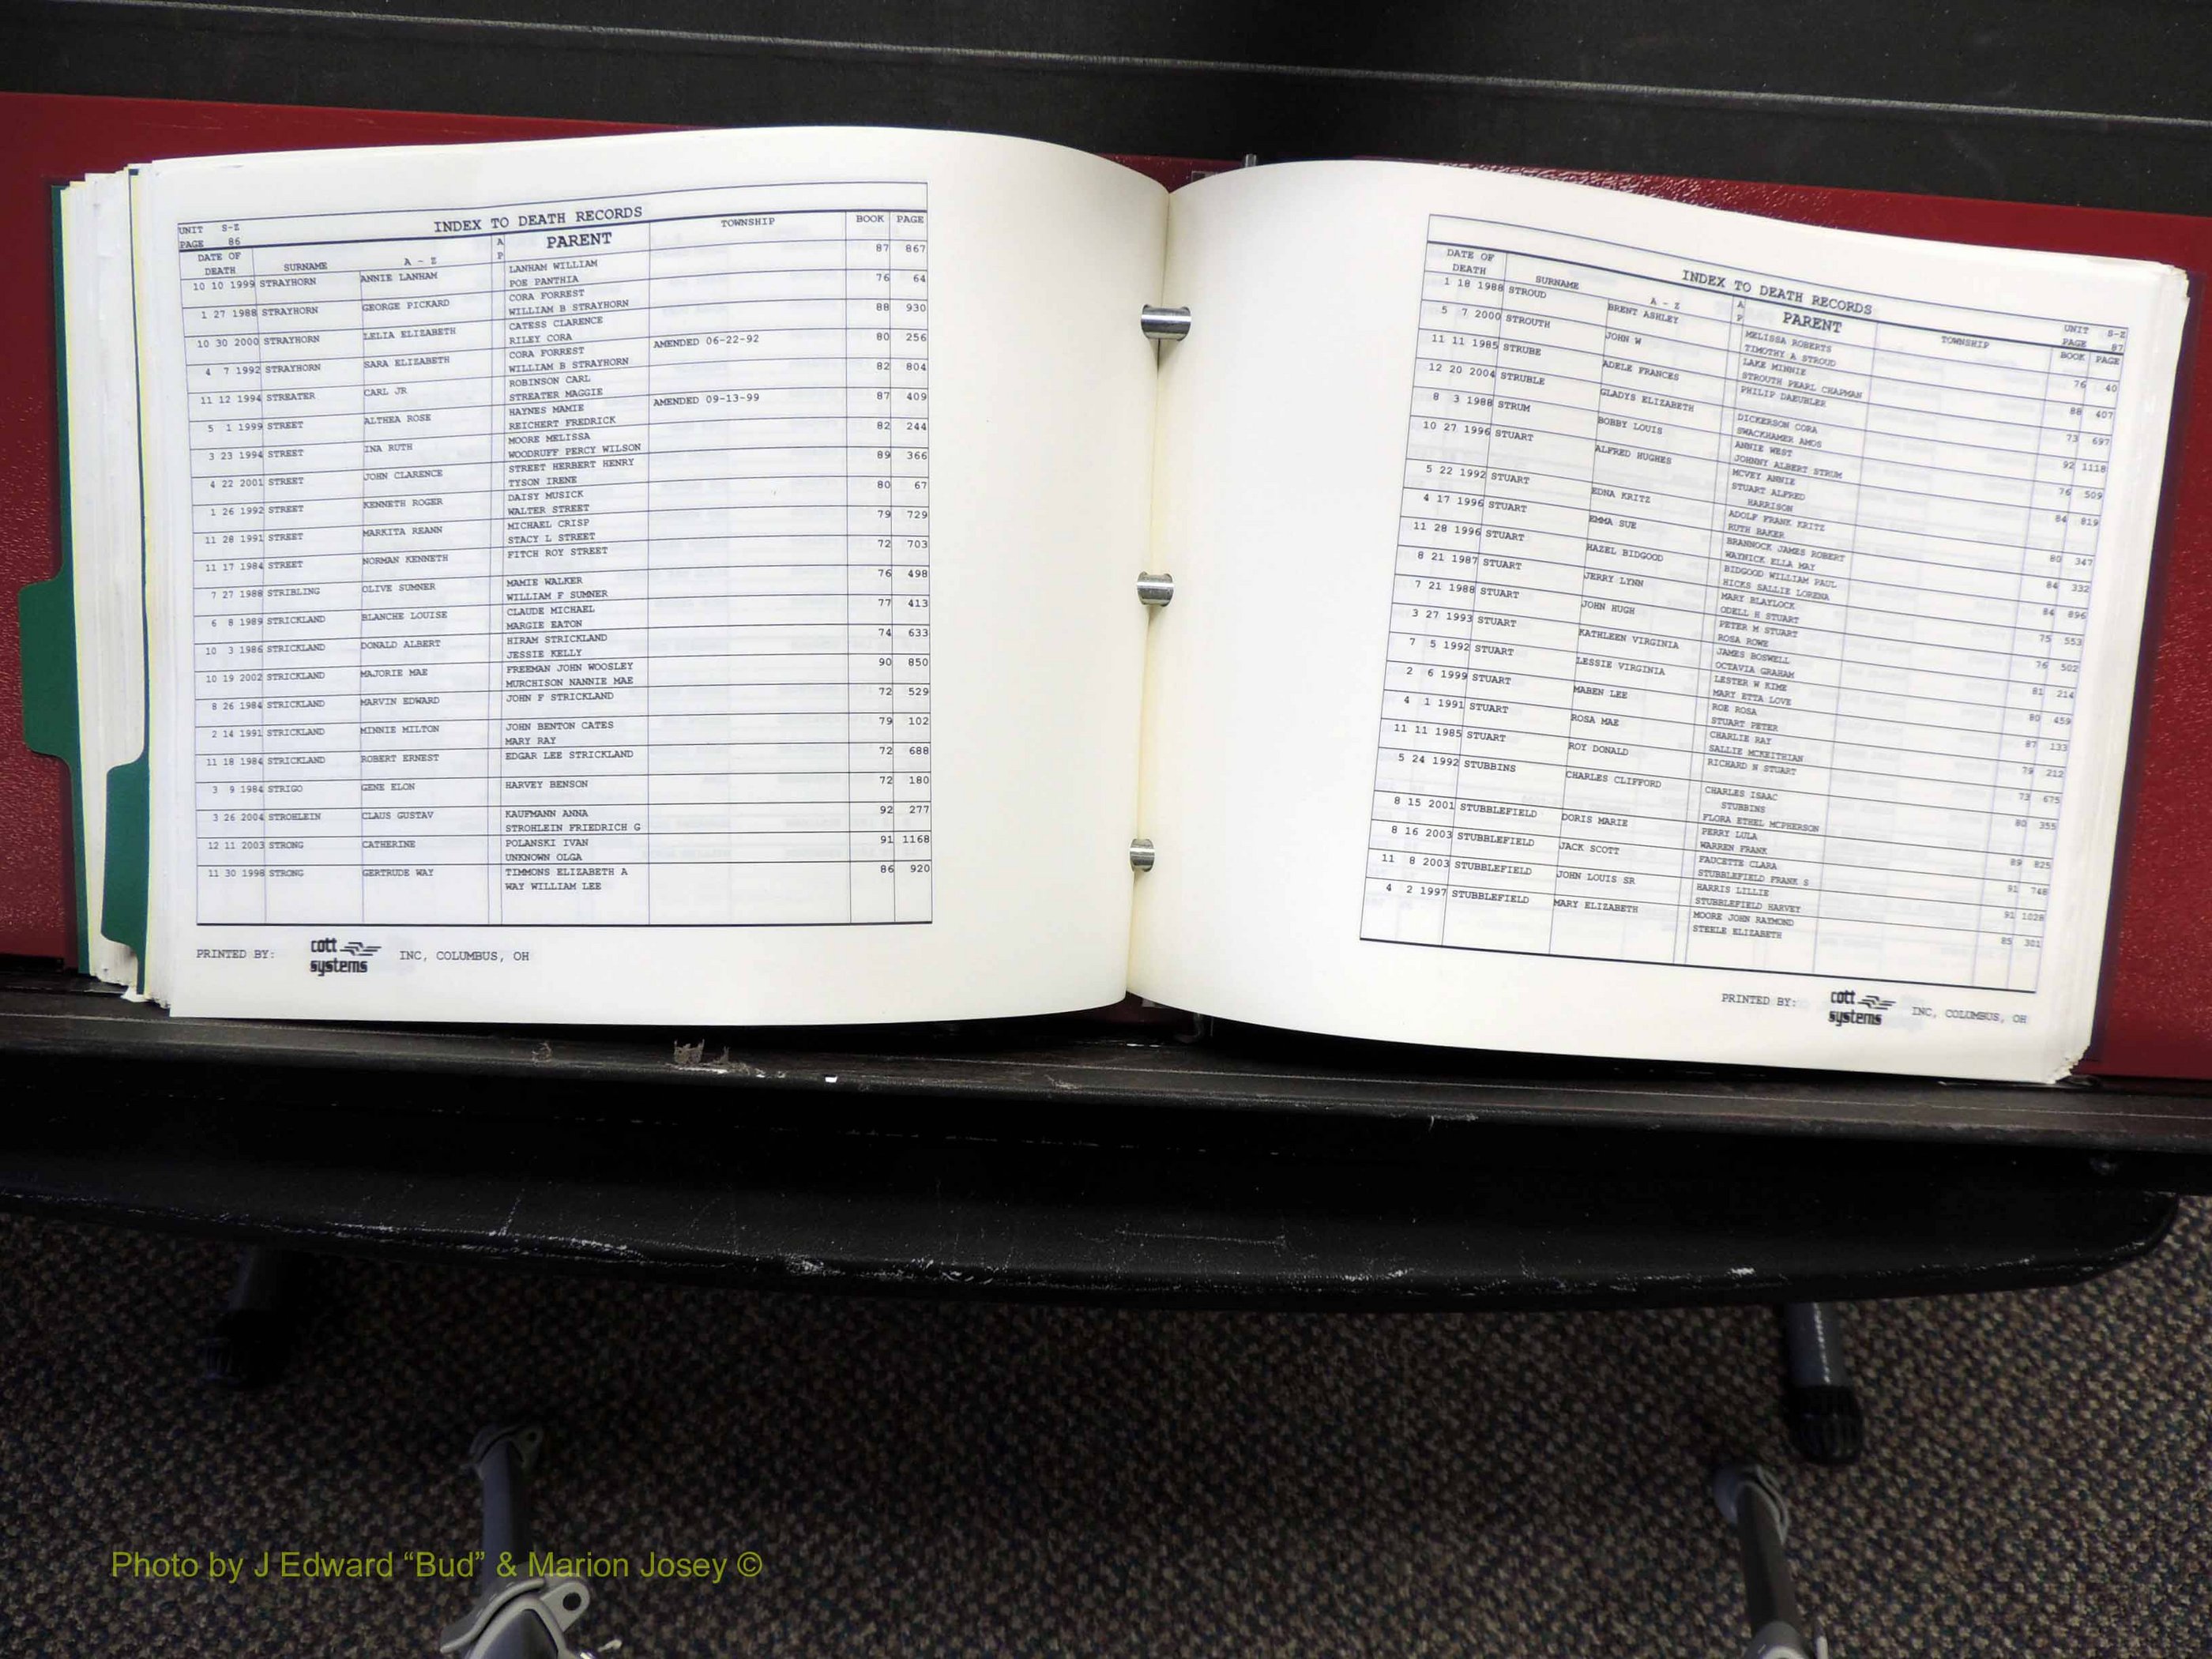 UNIT S-Z INDEX TO DEATH RECORDS
PAGE 86
DATE OF DEATH SURNAME A - Z A P PARENT TOWNSHIP BOOK PAGE
10 10 1999 STRAYHORN ANNIE LANHAM LANHAM WILLIAM 87 867
POE PANTHIA
1 27 1988 STRAYHORN GEORGE PICKARD CORA FORREST 76 64
WILLIAM B STRAYHORN
10 30 2000 STRAYHORN LELIA ELIZABETH CATESS CLARENCE 88 930
RILEY CORA
4 7 1992 STRAYHORN SARA ELIZABETH CORA FORREST AMENDED 06-22-92 80 256
WILLIAM B STRAYHORN
11 12 1994 STREATER CARL JR ROBINSON CARL 82 804
STREATER MAGGIE
5 1 1999 STREET ALTHEA ROSE HAYNES MAMIE AMENDED 09-13-99 87 409
REICHERT FREDRICK
3 23 1994 STREET INA RUTH MOORE MELISSA 82 244
WOODRUFF PERCY WILSON
4 22 2001 STREET JOHN CLARENCE STREET HERBERT HENRY 89 366
TYSON IRENE
1 26 1992 STREET KENNETH ROGER DAISY MUSICK 80 67
WALTER STREET
11 28 1991 STREET MARKITA REANN MICHAEL CRISP 79 729
STACY L STREET
11 17 1984 STREET NORMAN KENNETH FITCH ROY STREET 72 703
7 27 1988 STRIBLING OLIVE SUMNER MAMIE WALKER 76 498
WILLIAM F SUMNER
6 8 1989 STRICKLAND BLANCHE LOUISE CLAUDE MICHAEL 77 413
MARGIE EATON
10 3 1986 STRICKLAND DONALD ALBERT HIRAM STRICKLAND 74 633
JESSIE KELLY
10 19 2002 STRICKLAND MAJORIE MAE FREEMAN JOHN WOOSLEY 90 850
MURCHISON NANNIE MAE
8 26 1984 STRICKLAND MARVIN EDWARD JOHN F STRICKLAND 72 529
2 14 1991 STRICKLAND MINNIE MILTON JOHN BENTON CATES 79 102
MARY RAY
11 18 1984 STRICKLAND ROBERT ERNEST EDGAR LEE STRICKLAND 72 688
3 9 1984 STRIGO GENE ELON HARVEY BENSON 72 180
3 26 2004 STROHLEIN CLAUS GUSTAV KAUFMANN ANNA 92 277
STROHLEIN FRIEDRICH G
12 11 2003 STRONG CATHERINE POLANSKI IVAN 91 1168
UNKNOWN OLGA
11 30 1998 STRONG GERTRUDE WAY TIMMONS ELIZABETH A 86 920
WAY WILLIAM LEE
PRINTED BY: cott systems INC, COLUMBUS, OH
INDEX TO DEATH RECORDS UNIT S-Z
PAGE 87
DATE OF DEATH SURNAME A - Z A P PARENT TOWNSHIP BOOK PAGE
1 18 1988 STROUD BRENT ASHLEY MELISSA ROBERTS 76 40
TIMOTHY A STROUD
5 7 2000 STROUTH JOHN W LAKE MINNIE 88 407
STROUTH PEARL CHAPMAN
11 11 1985 STRUBE ADELE FRANCES PHILIP DAEUBLER 73 697
12 20 2004 STRUBLE GLADYS ELIZABETH DICKERSON CORA 92 1118
SWACKHAMER AMOS
8 3 1988 STRUM BOBBY LOUIS ANNIE WEST 76 509
JOHNNY ALBERT STRUM
10 27 1996 STUART ALFRED HUGHES MCVEY ANNIE 84 819
STUART ALFRED
HARRISON
5 22 1992 STUART EDNA KRITZ ADOLF FRANK KRITZ 80 347
RUTH BAKER
4 17 1996 STUART EMMA SUE BRANNOCK JAMES ROBERT 84 332
WAYNICK ELLA MAY
11 28 1996 STUART HAZEL BIDGOOD BIDGOOD WILLIAM PAUL 84 896
HICKS SALLIE LORENA
8 21 1987 STUART JERRY LYNN MARY BLAYLOCK 75 553
ODELL H STUART
7 21 1988 STUART JOHN HUGH PETER M STUART 76 502
ROSA ROWE
3 27 1993 STUART KATHLEEN VIRGINIA JAMES BOSWELL 81 214
OCTAVIA GRAHAM
7 5 1992 STUART LESSIE VIRGINIA LESTER W KIME 80 459
MARY ETTA LOVE
2 6 1999 STUART MABEN LEE ROE ROSA 87 133
STUART PETER
4 1 1991 STUART ROSA MAE CHARLIE RAY 79 212
SALLIE MCKEITHIAN
11 11 1985 STUART ROY DONALD RICHARD N STUART 73 675
5 24 1992 STUBBINS CHARLES CLIFFORD CHARLES ISAAC 80 355
STUBBINS
FLORA ETHEL MCPHERSON
8 15 2001 STUBBLEFIELD DORIS MARIE PERRY LULA 89 825
WARREN FRANK
8 16 2003 STUBBLEFIELD JACK SCOTT FAUCETTE CLARA 91 748
STUBBLEFIELD FRANK S
11 8 2003 STUBBLEFIELD JOHN LOUIS SR HARRIS LILLIE 91 1028
STUBBLEFIELD HARVEY
4 2 1997 STUBBLEFIELD MARY ELIZABETH MOORE JOHN RAYMOND 85 301
STEELE ELIZABETH
PRINTED BY: cott systems INC, COLUMBUS, OH
Photo by J Edward “Bud” & Marion Josey ©